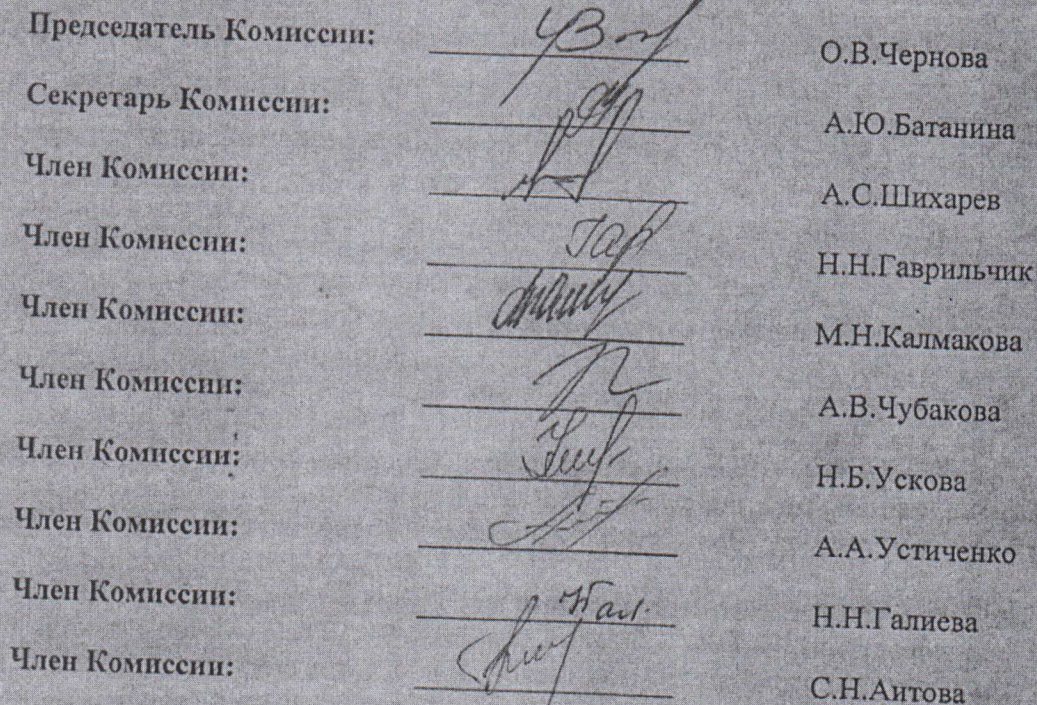 Председатель Комиссии: О.В.Чернова
Секретарь Комиссии: А.Ю.Батанина
Член Комиссии: А.С.Шихарев
Член Комиссии: Н.Н.Гаврильчик
Член Комиссии: М.Н.Калмакова
Член Комиссии: А.В.Чубакова
Член Комиссии: Н.Б.Ускова
Член Комиссии: А.А.Устиченко
Член Комиссии: Н.Н.Галиева
Член Комиссии: С.Н.Аитова